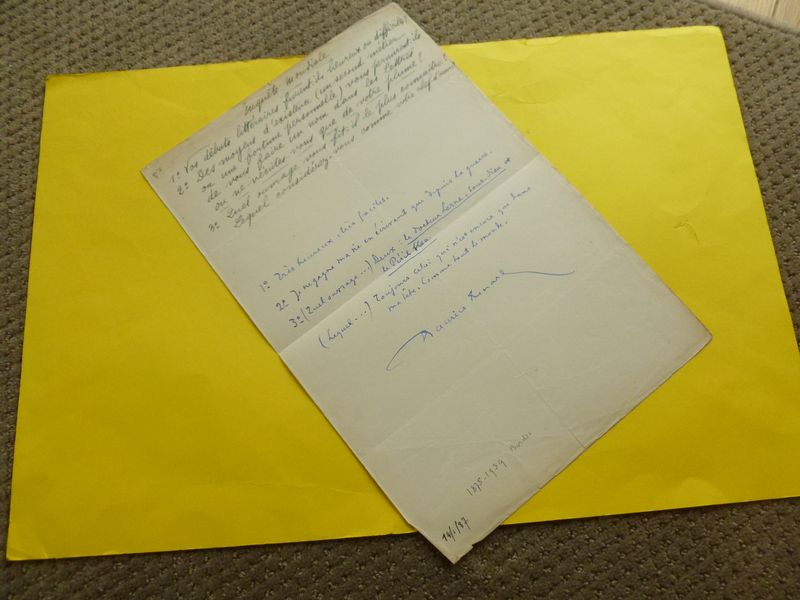 Enquête mondiale
1º Vos débuts littéraires furent-ils heureux ou difficiles
2º Des moyens d'existence (un second métier
ou une fortune personnelle) vous permirent-ils
de vous faire un nom dans les lettres,
ou ne vécûtes vous que de votre plume?
3º Quel ouvrage vous fit-il le plus connaître?
Lequel considérez-vous comme votre chef d'œuvre
1º Très heureux, très faciles.
2º Je ne gagne ma vie en écrivant que depuis la guerre.
3º (Quel ouvrage...) Deux : le Docteur Lerne, sous-dieu et
le Péril bleu.
(Lequel...) Toujours celui qui n'est encore que dans
ma tête. Comme tout le monde.
Maurice Renard
1875-1939
14/1/37